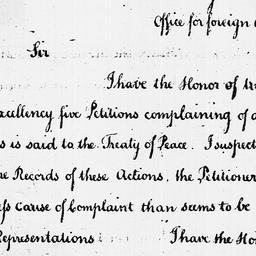 Office for foreign
Sir
I have the Honor of
xcellency five Petitions complaining of
s is said to the Treaty of Peace. I suspect
e Records of these Actions, the Petitioner
ss cause of Complaint than seems to be
Representations I have the Ho